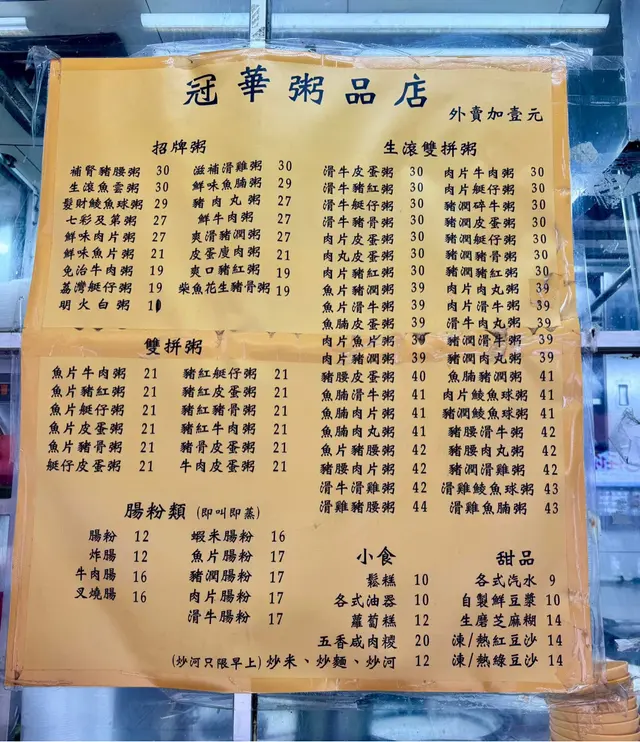 冠華粥品店
外賣加壹元
招牌粥
補腎豬腰粥 30
生滾魚雲粥 30
髮財鯪魚球粥 29
七彩及第粥 27
鮮味肉片粥 27
鮮味魚片粥 21
免治牛肉粥 19
荔灣艇仔粥 19
明火白粥
滋補滑雞粥 30
鮮味魚腩粥 29
豬肉丸粥 27
鮮牛肉粥 27
爽滑豬潤粥 27
皮蛋瘦肉粥 21
爽口豬紅粥 19
柴魚花生豬骨粥 19
生滾雙拼粥
滑牛皮蛋粥 30
滑牛豬紅粥 30
滑牛艇仔粥 30
滑牛豬骨粥 30
肉片皮蛋粥 30
肉丸皮蛋粥 30
肉片豬紅粥 30
魚片豬潤粥 39
魚片滑牛粥 39
魚腩皮蛋粥 39
肉片魚片粥 39
肉片豬潤粥 39
豬腰皮蛋粥 40
魚腩滑牛粥 41
魚腩肉片粥 41
魚腩肉丸粥 41
魚片豬腰粥 42
豬腰肉片粥 42
滑牛滑雞粥 42
滑雞豬腰粥 44
肉片牛肉粥 30
肉片艇仔粥 30
豬潤碎牛粥 30
豬潤皮蛋粥 30
豬潤艇仔粥 30
豬潤豬骨粥 30
豬潤豬紅粥 30
肉片肉丸粥 39
肉片滑牛粥 39
滑牛肉丸粥 39
豬潤滑牛粥 39
豬潤肉丸粥 39
魚腩豬潤粥 41
肉片鯪魚球粥 41
豬潤鯪魚球粥 41
豬腰滑牛粥 42
豬腰肉丸粥 42
豬潤滑雞粥 42
滑雞鯪魚球粥 43
滑雞魚腩粥 43
雙拼粥
魚片牛肉粥 21
魚片豬紅粥 21
魚片艇仔粥 21
魚片皮蛋粥 21
魚片豬骨粥 21
艇仔皮蛋粥 21
豬紅艇仔粥 21
豬紅皮蛋粥 21
豬紅豬骨粥 21
豬紅牛肉粥 21
豬骨皮蛋粥 21
牛肉皮蛋粥 21
腸粉類 (即叫即蒸)
腸粉 12
炸腸 12
牛肉腸 16
叉燒腸 16
蝦米腸粉 16
魚片腸粉 17
豬潤腸粉 17
肉片腸粉 17
滑牛腸粉 17
小食
鬆糕 10
各式油器 10
蘿蔔糕 12
五香咸肉糭 20
(炒河只限早上) 炒米、炒麵、炒河 12
甜品
各式汽水 9
自製鮮豆漿 10
生磨芝麻糊 14
凍/熱紅豆沙 14
凍/熱綠豆沙 14